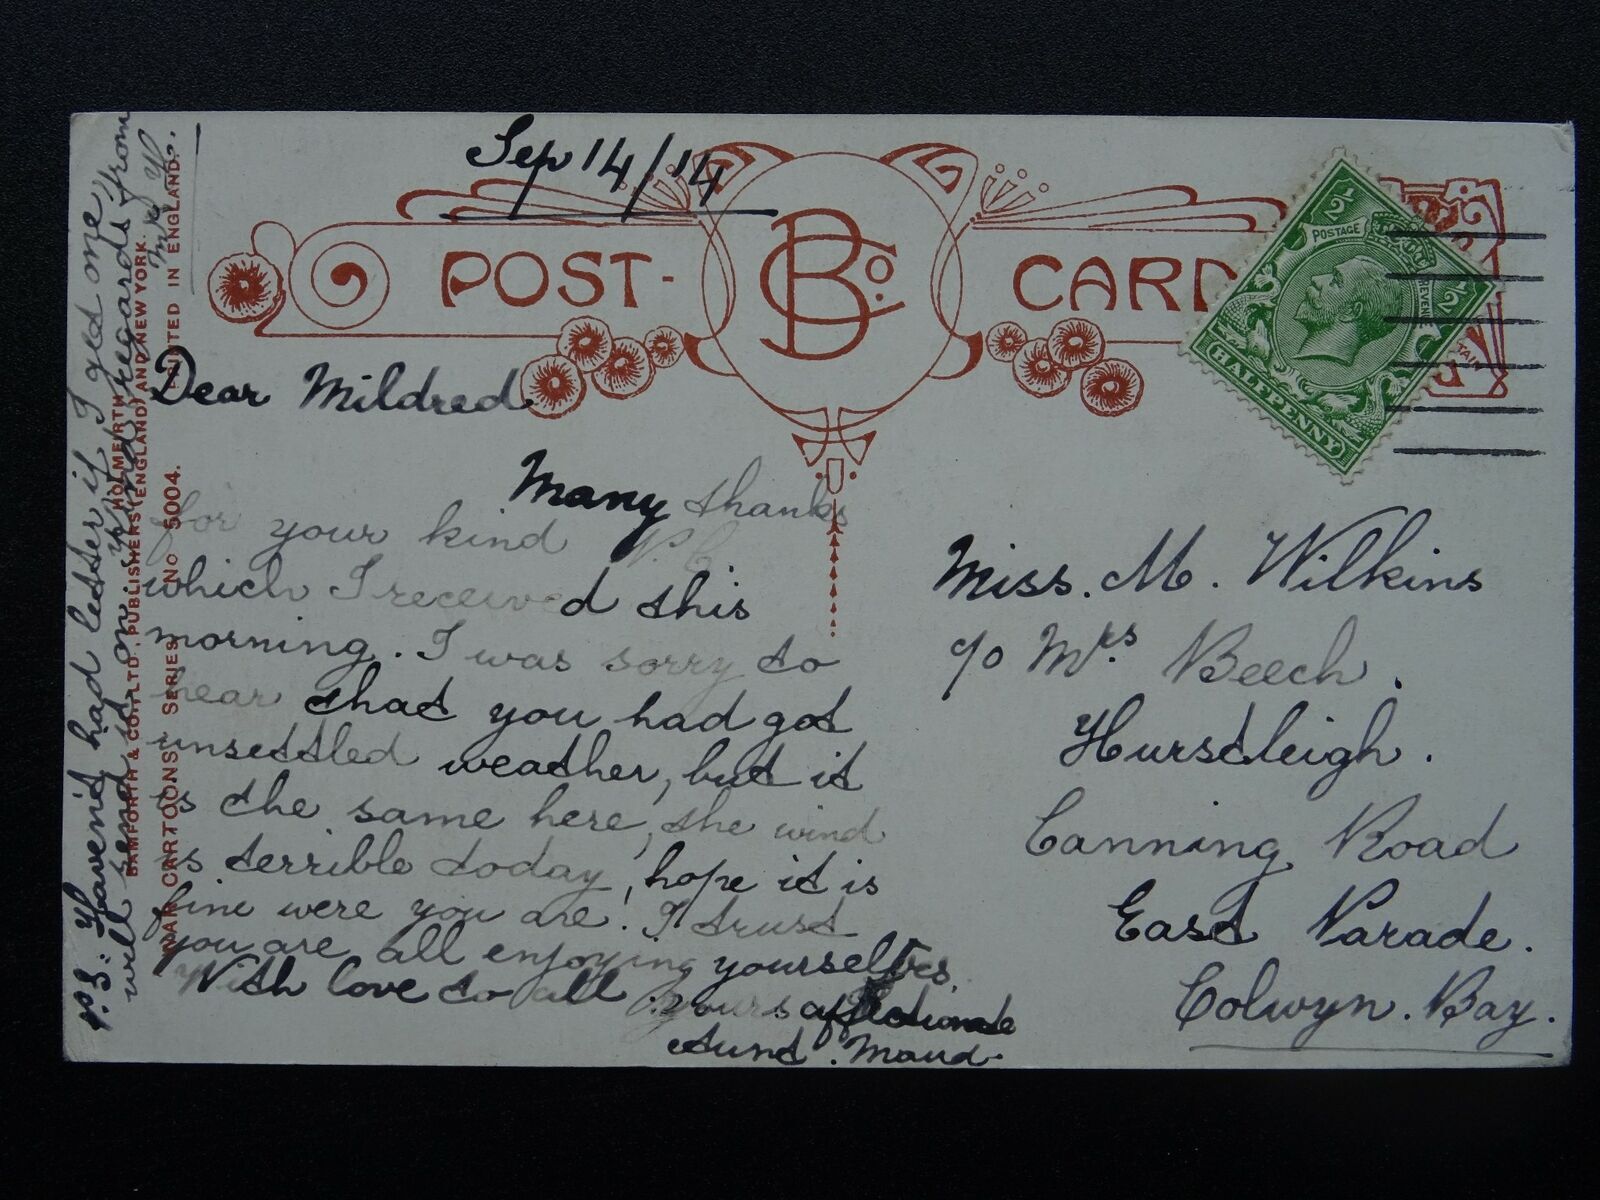 Sep 14/14
POST- B Co. CARD
½ POSTAGE REVENUE ½
HALFPENNY
Dear Mildred
Many thanks
for your kind P.C
which I received this
morning. I was sorry to
hear that you had got
unsettled weather, but it
is the same here, the wind
is terrible today, hope it is
fine were you are. I trust
you are all enjoying yourselves
With love to all. yours affectionate
Aunt. Maud.
P.S. Haven't had letter if I get one,
will send it on. kind regards from
Mr H.
Miss. M. Wilkins
c/o Mrs Beech.
Hurstleigh.
Canning Road
East Parade.
Colwyn. Bay.
BAMFORTH & CO. LTD., PUBLISHERS (ENGLAND) AND NEW YORK.
HOLMFIRTH
WAR CARTOONS SERIES No 5004.
PRINTED IN ENGLAND.